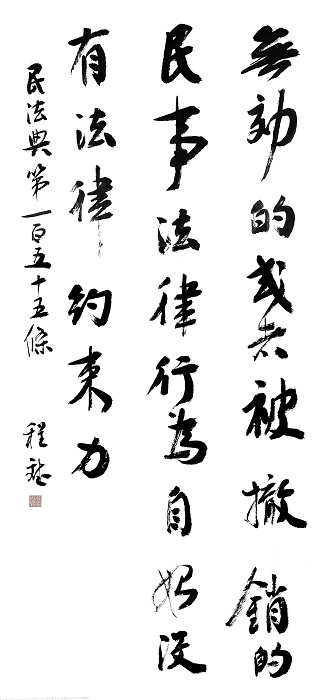 無効的或者被撤銷的
民事法律行為自始没
有法律約束力
民法典第一百五十五條
程